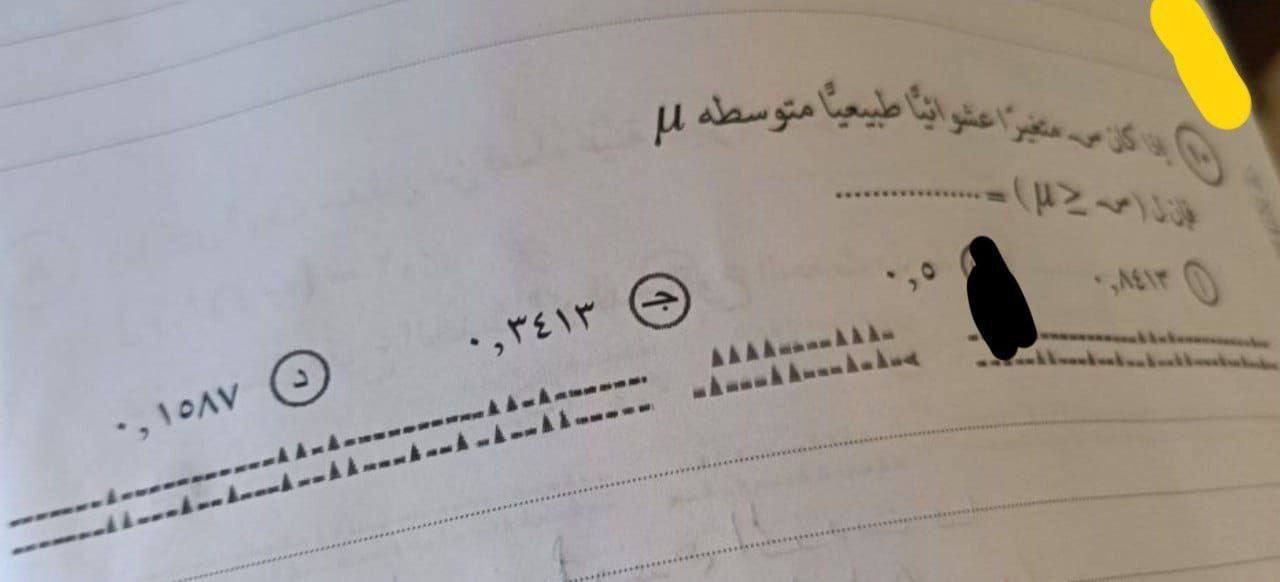 ١٠ إذا كان س متغيرًا عشوائيًّا طبيعيًّا متوسطه μ
فإن ل (س ≥ μ) = ................
أ ٠,٨٤١٣
٠,٥
جـ ٠,٣٤١٣
د ٠,١٥٨٧